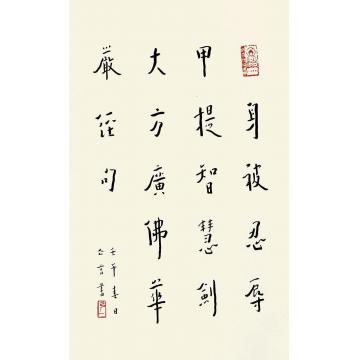 身被忍辱
甲提智慧劍
大方廣佛華
嚴經句
春日
言書